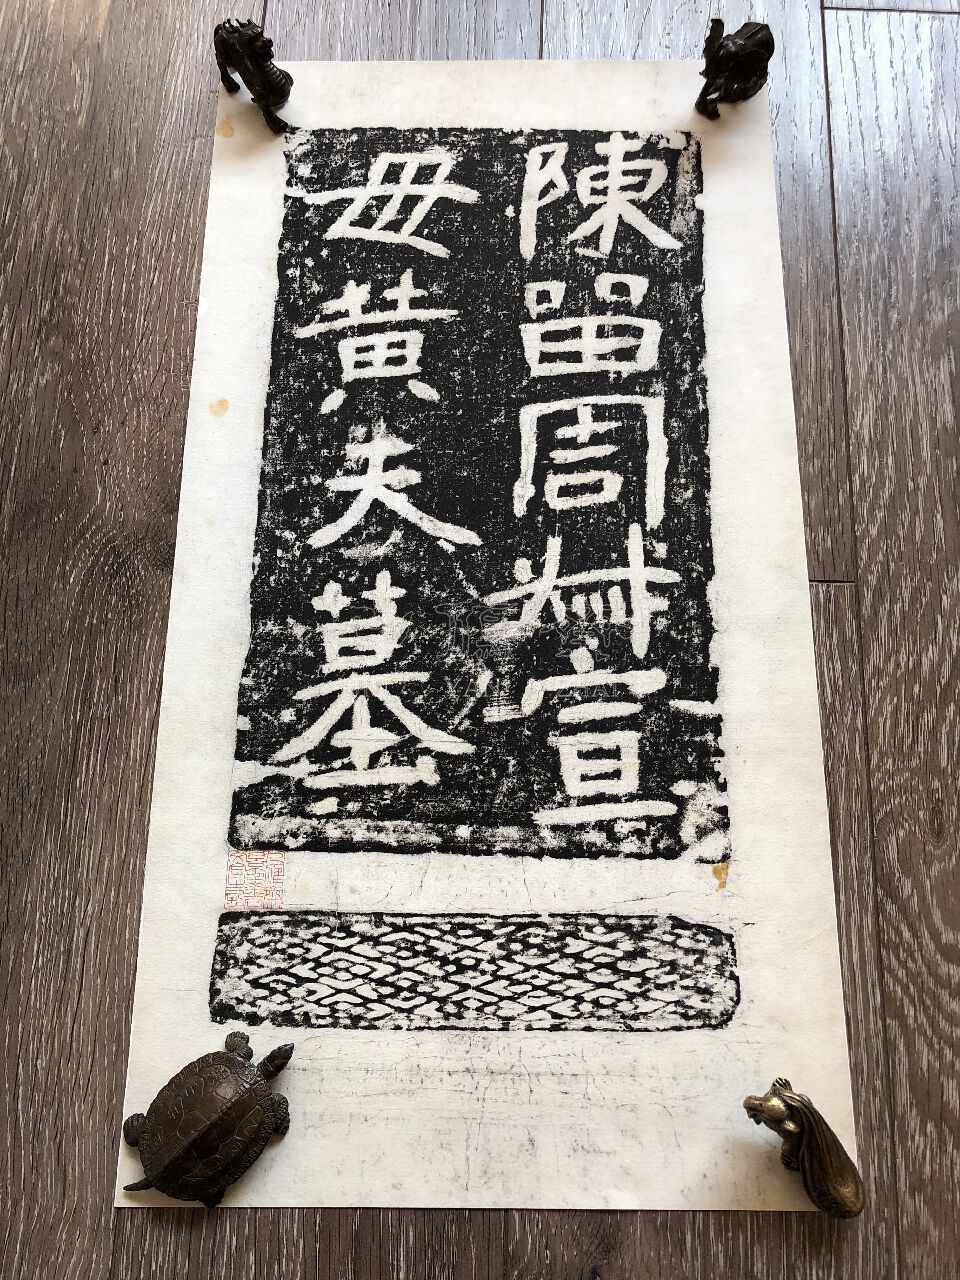 陳留周叔宣
母黃夫墓